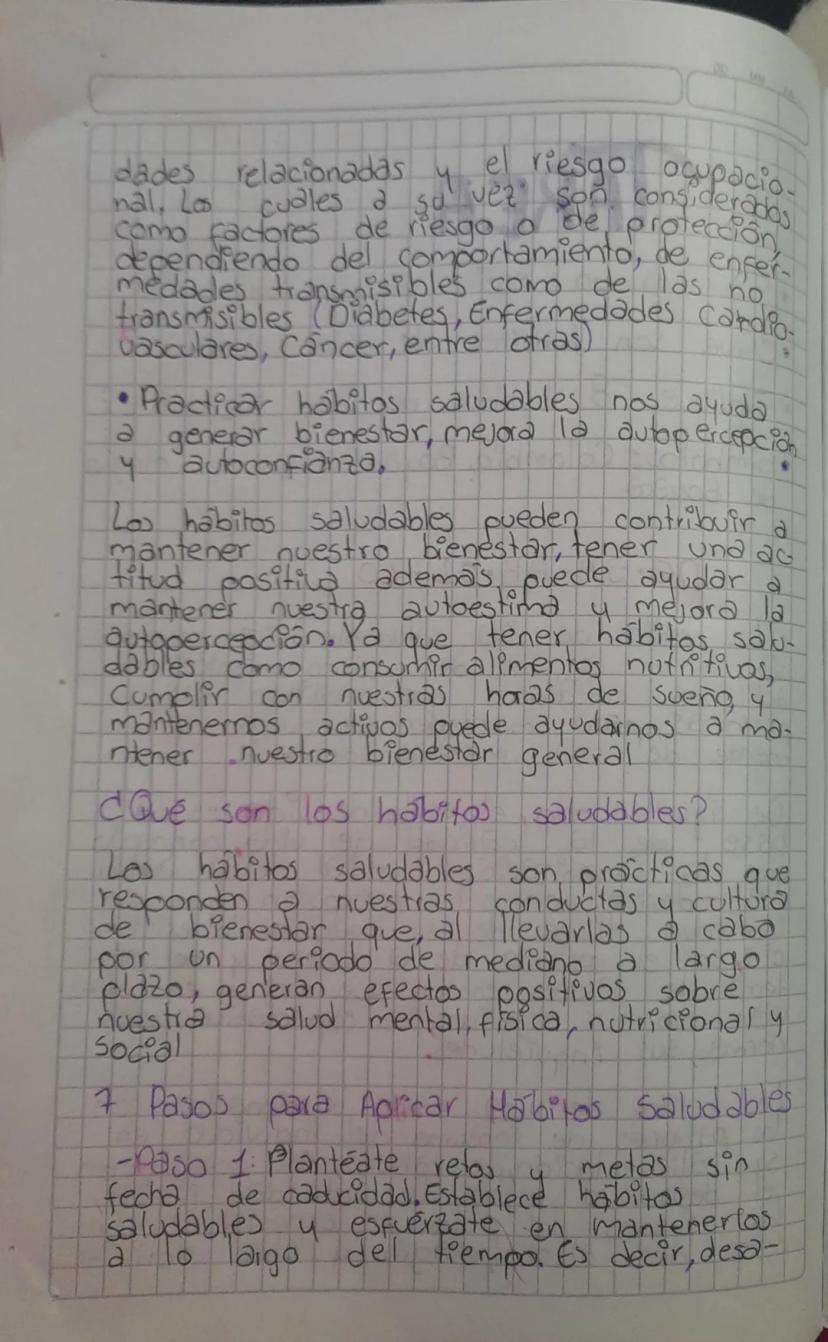 dades relacionadas y el riesgo ocupacio-
nal. Los cuales a su vez son considerados
como factores de riesgo o de protección,
dependiendo del comportamiento, de enfer-
medades transmisibles como de las no
transmisibles (Diabetes, Enfermedades Cardio-
vasculares, Cáncer, entre otras).
• Practicar hábitos saludables nos ayuda
a generar bienestar, mejora la autopercepción
y autoconfianza.
Los hábitos saludables pueden contribuir a
mantener nuestro bienestar, tener una ac
titud positiva además puede ayudar a
mantener nuestra autoestima y mejora la
autopercepción. Ya que tener hábitos salu-
dables como consumir alimentos nutritivos,
cumplir con nuestras horas de sueño, y
mantenernos activos puede ayudarnos a ma-
ntener nuestro bienestar general
¿Qué son los hábitos saludables?
Los hábitos saludables son prácticas que
responden a nuestras conductas y cultura
de bienestar que, al llevarlas a cabo
por un periodo de mediano a largo
plazo, generan efectos positivos sobre
nuestra salud mental, física, nutricional y
social
7 Pasos para Aplicar Hábitos Saludables
-Paso 1: Plantéate retos y metas sin
fecha de caducidad. Establece hábitos
saludables y esfuérzate en mantenerlos
a lo largo del tiempo. Es decir, desa-